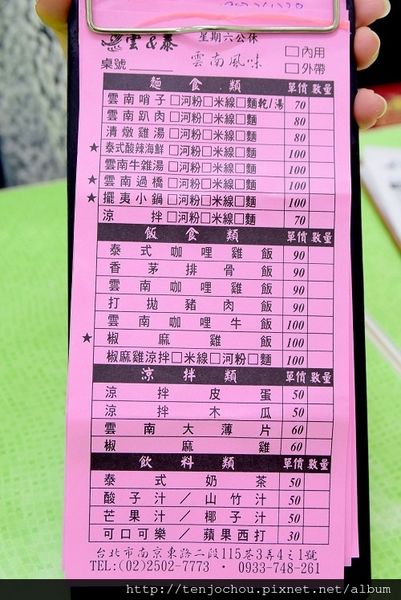 雲&泰 星期六公休
桌號 雲南風味 □內用 □外帶
麵食類 單價 數量
雲南哨子□河粉□米線□麵乾/湯 70
雲南趴肉□河粉□米線□麵 80
清燉雞湯□河粉□米線□麵 80
★泰式酸辣海鮮□河粉□米線□麵 100
雲南牛雜湯□河粉□米線□麵 100
★雲南過橋□河粉□米線□麵 100
★擺夷小鍋□河粉□米線□麵 100
涼拌□河粉□米線□麵 70
飯食類 單價 數量
泰式咖哩雞飯 90
香茅排骨飯 90
雲南咖哩雞飯 90
打拋豬肉飯 90
雲南咖哩牛飯 100
★椒麻雞飯 100
椒麻雞涼拌□米線□河粉□麵 100
涼拌類 單價 數量
涼拌皮蛋 50
涼拌木瓜 50
雲南大薄片 60
椒麻雞 60
飲料類 單價 數量
泰式奶茶 50
酸子汁/山竹汁 50
芒果汁/椰子汁 50
可口可樂/蘋果西打 30
台北市南京東路二段115巷3弄4之1號
TEL:(02)2502-7773 · 0933-748-261
http://tenjochou.pixnet.net/album